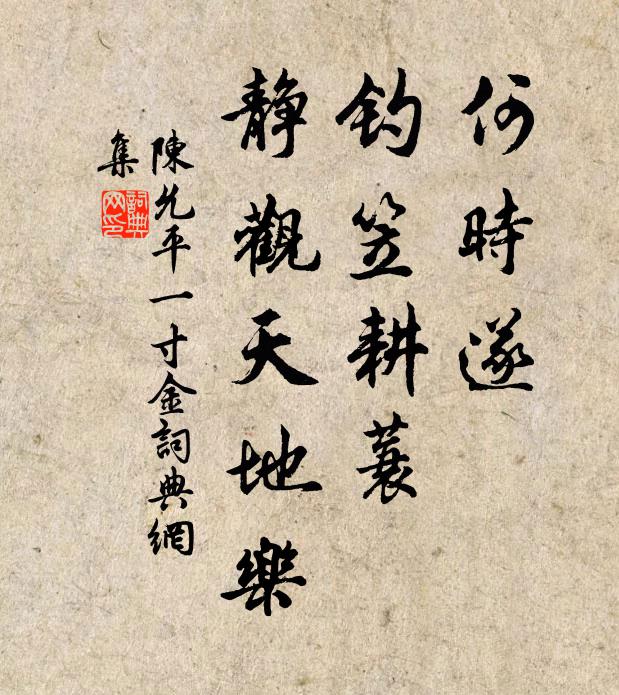 何時遂
釣笠耕蓑
静觀天地樂
陳允平一寸金詞典網
集
詞典
网印